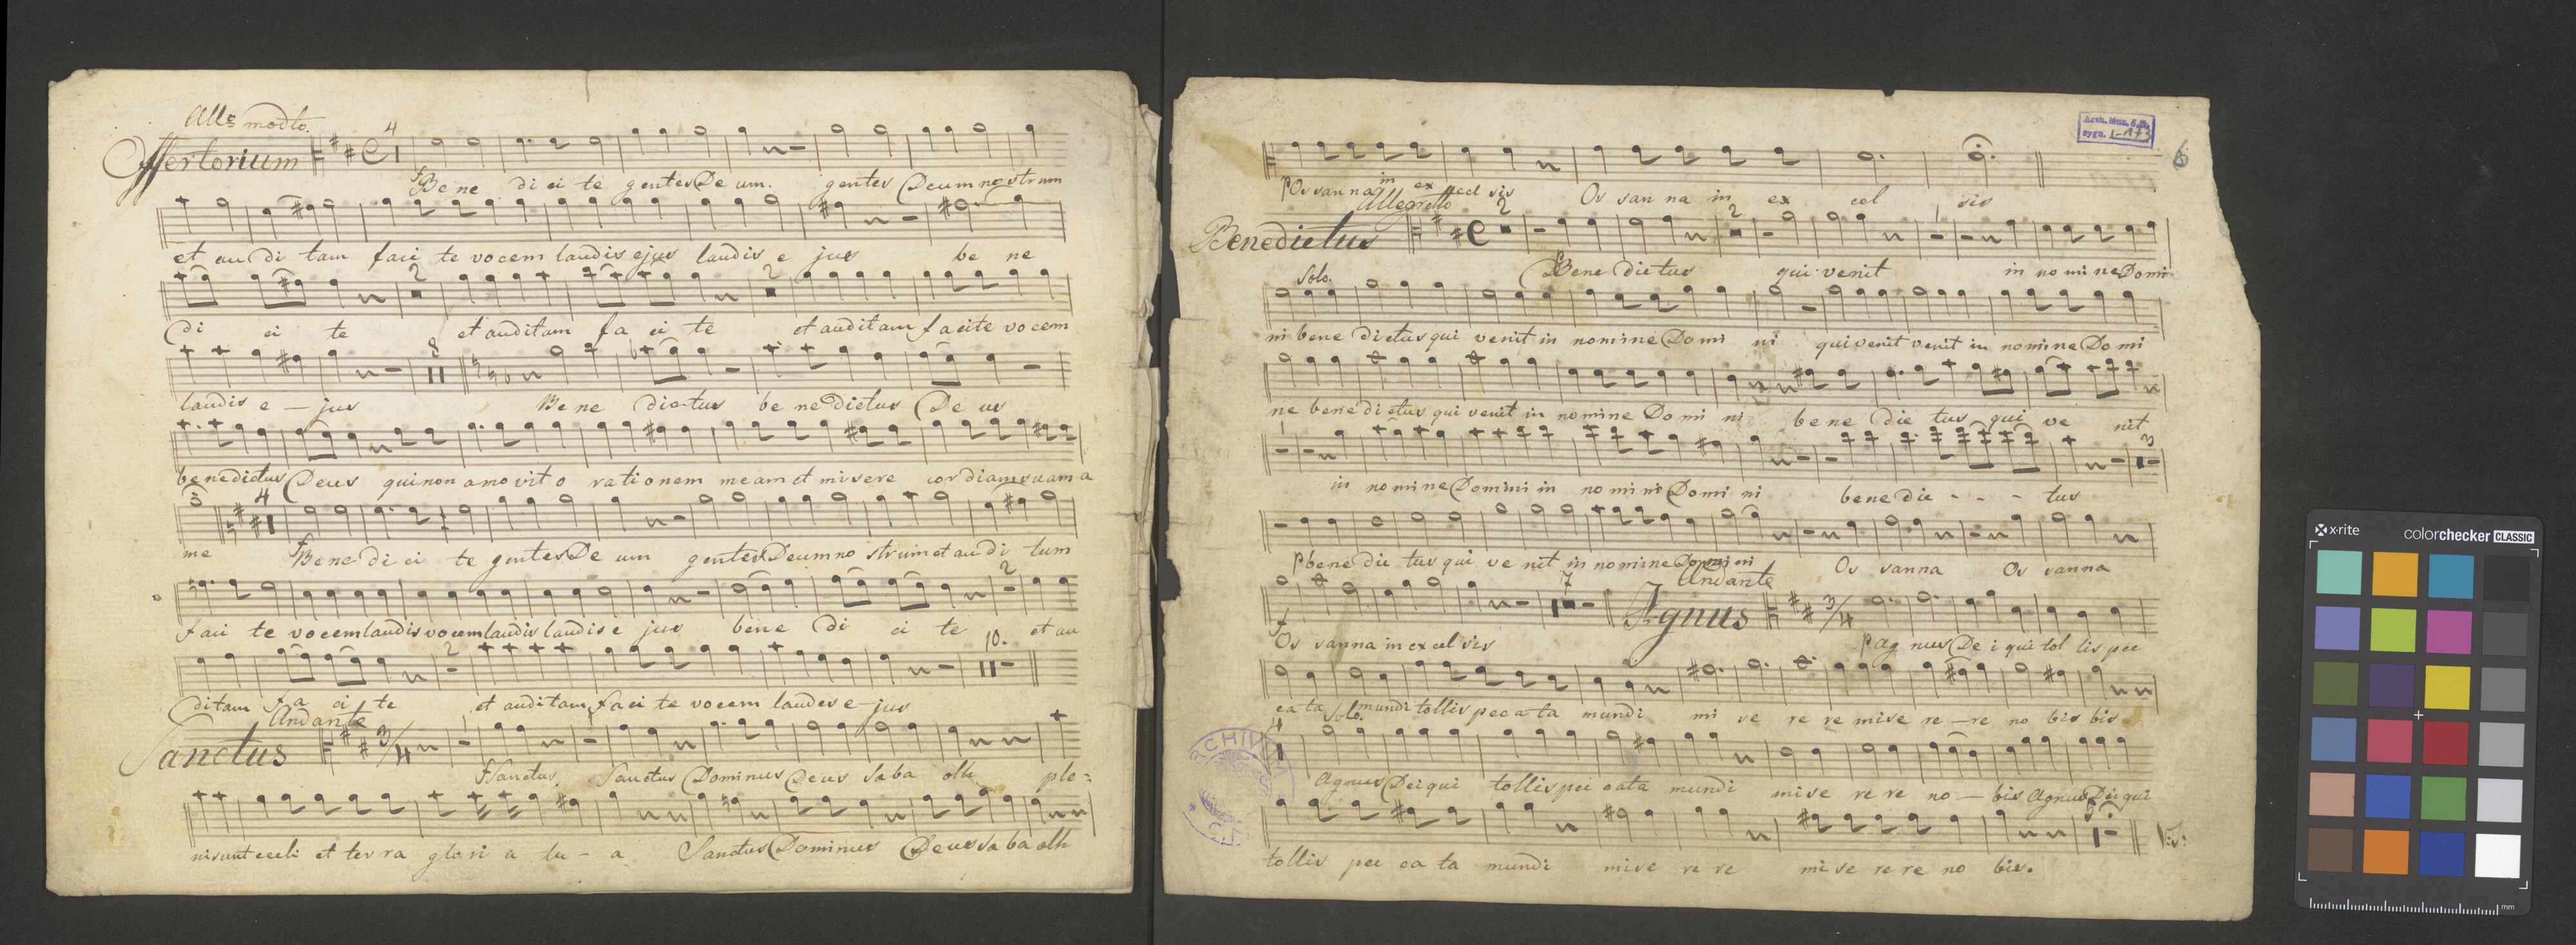 All:º modto.
Offertorium
4
Bene di ci te gentes De um. gentes Deum nostrum
et au di tam faci te vocem laudis ejus laudis e jus be ne
2 2
di ci te et auditam fa ci te et auditam facite vocem
8
laudis e – jus Be ne dictus be ne dictus De us
benedictus Deus qui non amovit o rationem meam et misere cordiam suam a
4
me f Bene di ci te gentes De um gentes Deum no strum et au di tum
2
faci te vocem laudis vocem laudis laudis e jus bene di ci te et au
2 10.
ditam fa ci te et auditam faci te vocem laudes e – jus
Andante
Sanctus 3/4
Sanctus Sanctus Dominus Deus Saba oth ple=
ni sunt coeli et ter ra glo ri a tu – a Sanctus Dominus Deus Saba oth
Arch. Muz.
sygn. I-173
6
p Os san na in ex cel sis Os san na in ex cel sis
Allegretto
Benedictus
2 2 1
Bene dictus qui venit in no mi ne Domi
Solo.
ni bene dictus qui venit in nomine Domi ni qui venit venit in nomine Do mi
ne benedictus qui venit in nomine Do mi ni be ne dic tus qui ve nit
1 3
in no mi ne Domini in no mi ni Domi ni bene dic - - - tus
p bene dic tus qui ve nit in nomine Domini Os sanna Os sanna
7
Andante
Agnus 3/4
f
Os sanna in excel sis p Ag nus De i qui tol lis pec
ca ta mundi tollis pec ca ta mundi mi se re re mise re – re no bis bis
4 Solo.
Agnus Dei qui tollis pec cata mundi mise re re no – bis Agnus Dei qui
5
tollis pec ca ta mundi mise re re mi se re re no bis.
V:S:
ARCHIVUM
x-rite
colorchecker CLASSIC
mm